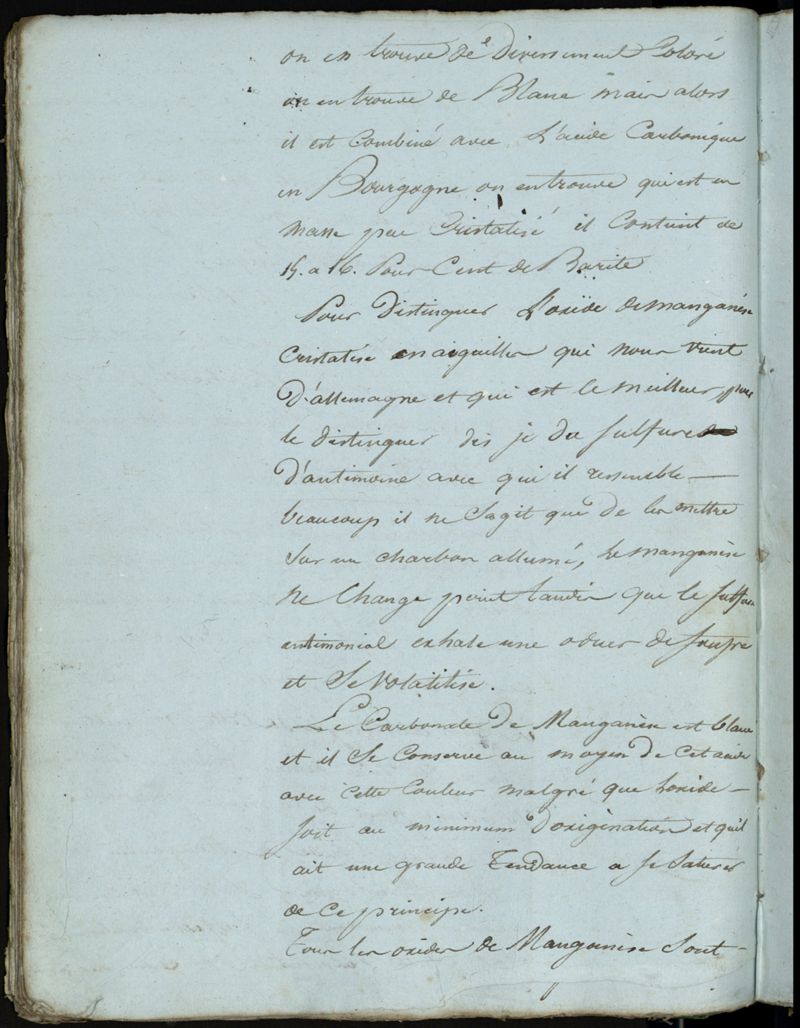 on en trouve de diversement Coloré
on en trouve de Blanc mais alors
il est Combiné avec L'acide Carbonique
en Bourgogne on en trouve qui est en
masse peu Cristalisé il Contient de
15. a 16. Pour Cent de Barite
Pour distinguer L'oxide de manganèse
Cristalisé en aiguilles qui nous vient
D'allemagne et qui est le meilleur pour
le distinguer dis je du sulfure
D'antimoine avec qui il ressemble
beaucoup il ne Sagit que de les mettre
Sur un charbon allumé, Le manganèse
ne Change point tandis que le sulfure
antimonial exhale une odeur de soufre
et Se Volatilise.
Le Carbonate de Manganèse est blanc
et il Se Conserve au moyen de Cet acide
avec cette Couleur malgré que Loxide
soit au minimum Doxigination et quil
ait une grande Tendance a se Saturer
de Ce principe.
Tous les oxides de Manganèse Sont